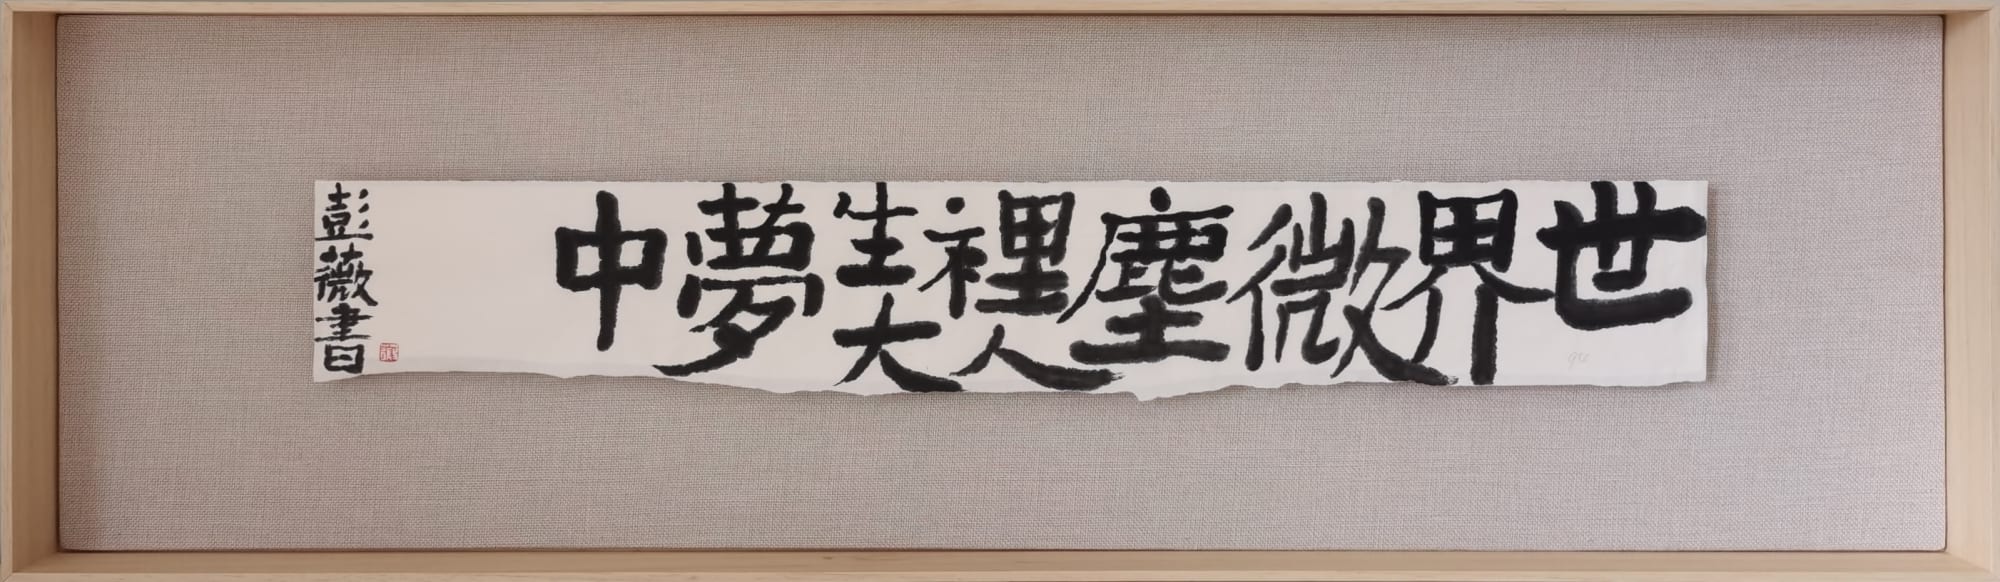 世界微塵裡人生大夢中
彭薇書